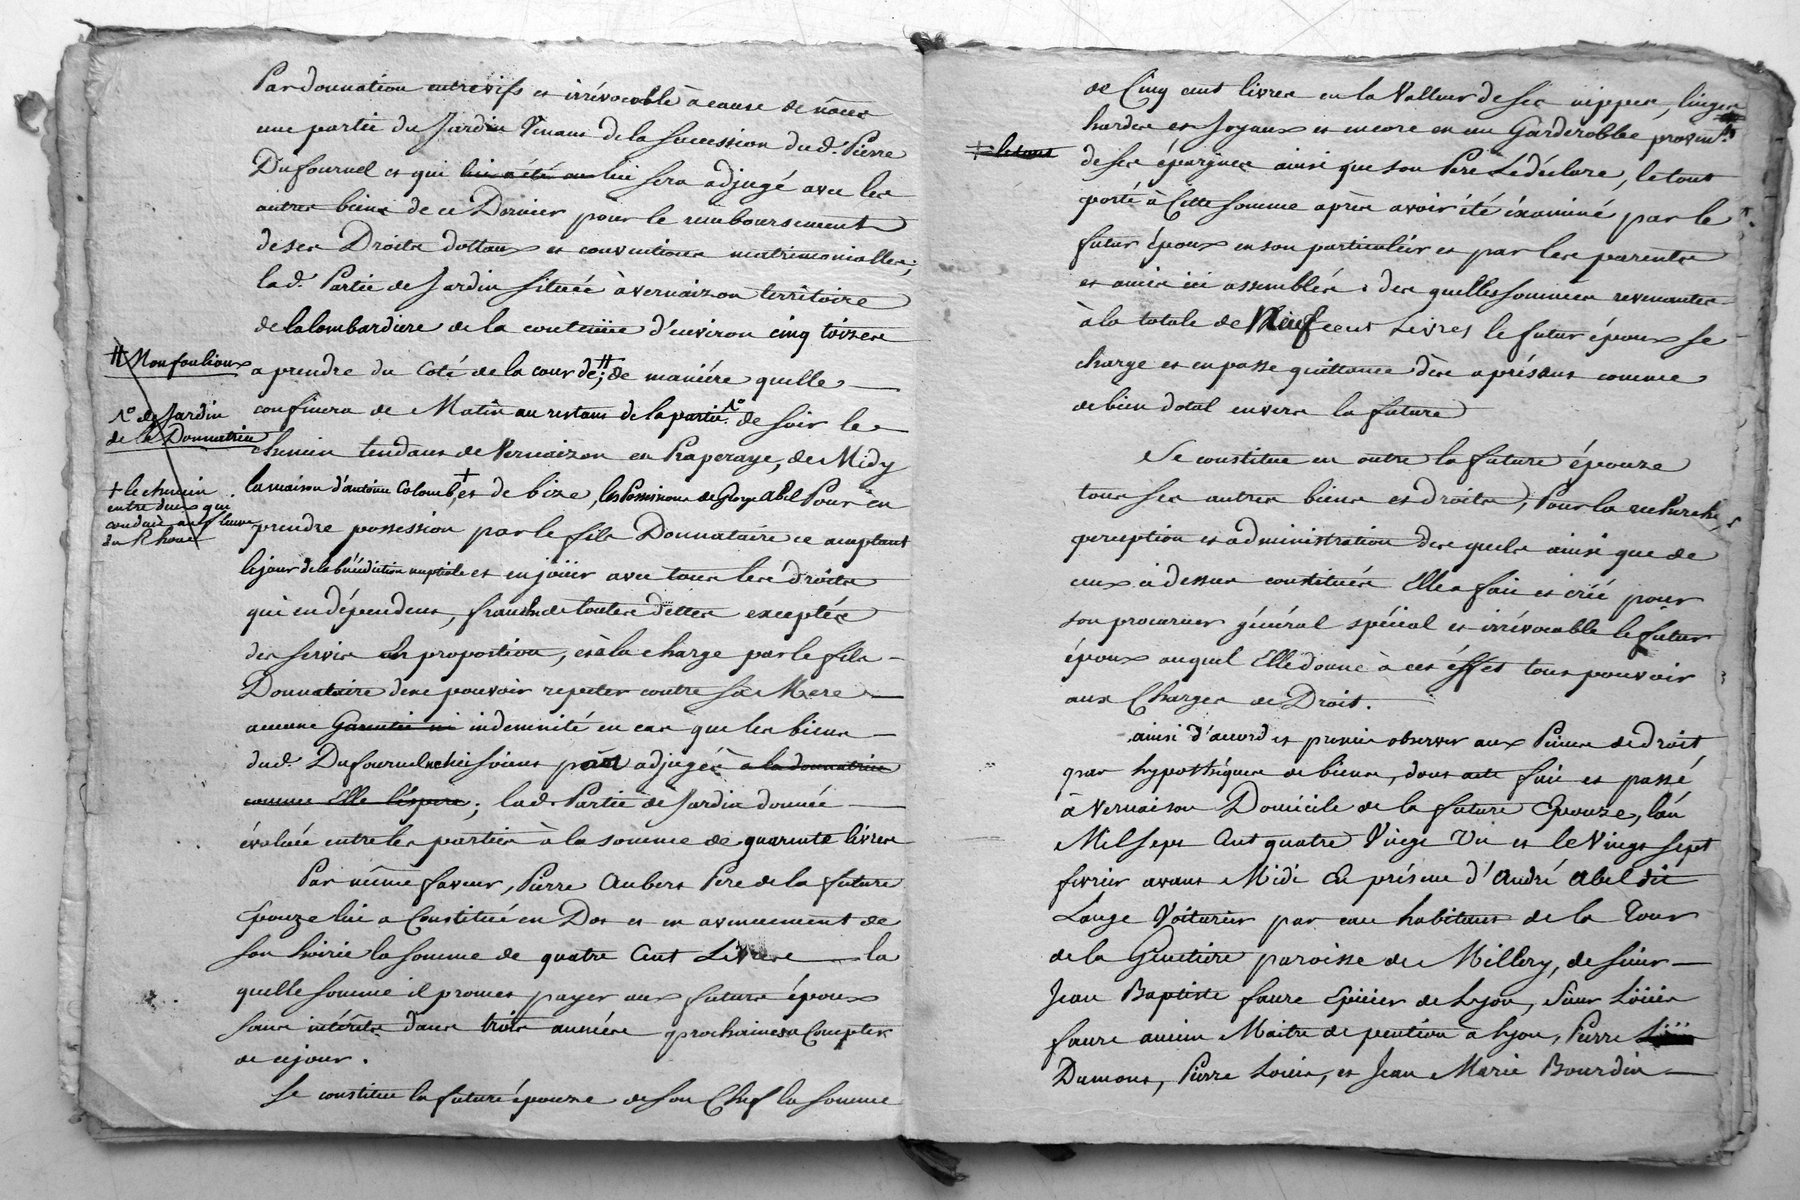 Par donnation entrevifs et irrévocable à cause de nôces
une partie du Jardin Venant de la succession dud. Pierre
Dufournel et qui lui a été lui sera adjugé avec les
autres biens de ce Dernier pour le remboursement
de ses Droits dottaux et conventions matrimonialles;
lad. Partie de Jardin située à vernaizon territoire
de lalombardiere de la contenüe d'environ cinq toizes
# Monfoulioux
a prendre du Coté de la cour de #; de maniére quelle
1° de Jardin
de la Donnatrice
confinera de Matin au restant de la partie 1° de soir le
chemin tendant de Vernaizon en Praperaye, de Midy
+ le chemin
entre deux qui
conduit au fleuve
du Rhone
la maison d'antoine Colomb, + et de bize, les Possessions de George abel Pour en
prendre possession par le fils Donnataire ce acceptant
le jour de la bénédiction nuptiale et en joüir avec tous les droits
qui en dépendent, franche de toutes dettes exceptés
des servis de proportion, et à la charge par le fils
Donnataire de ne pouvoir repeter contre sa Mere
aucune Garantie ni indemnité en cas que les biens
dud. Dufournel ne lui soient pas adjugés à la donnatrice
comme Elle l'éspere; lad. Partie de Jardin donnée
évaluée entre les parties à la somme de quarente livres
Par même faveur, Pierre Aubert Pere de la future
Epouze lui a Constitué en Dot et en avancement de
son hoirie la somme de quatre Cent Livres la
quelle somme il promet payer aux futurs époux
sans intérêts dans trois années prochaines a Compter
de ce jour.
Se constitue la future épouze de son Chef la somme
de Cinq cent livres en la Valleur de ses nippes, linges
hardes et Joyaux et encore en un Garderobbe proven.t
+ le tout
de ses épargnes ainsi que son Pere Le déclare, le tout
porté à Cette somme après avoir été éxaminé par le
futur époux en son particulier et par les parents
et amis ici assemblés; des quelles sommes revenantes
à la totale de Neuf cent Livres le futur époux se
charge et en passe quittance dès a présent comme
de bien dotal envers la future
Se constitue en outre la future épouze
tous ses autres biens et droits, Pour la recherche,
perception et administration des quels ainsi que de
ceux ci dessus constitués Elle a fait et créé pour
son procureur général spécial et irrévocable le futur
époux auquel Elle donne à cet éffet tout pouvoir
aux Charges de Droit.
ainsi d'accord et promis observer aux Peines de droit
par hypothéques de biens, dont acte fait et passé
à Vernaison Domicile de la future Epouze, l'án
Mil sept Cent quatre Vingt Un et le Vingt sept
fevrier avant Midi En présence d'André Abel dit
Lange Voiturier par eau habitant de la Tour
de la Ginetiere paroisse de Millery, de sieur
Jean Baptiste faure Epicier de Lyon, sieur Loüis
faure ancien Maitre de pention à Lyon, Pierre
Dumont, Pierre Loüis, et Jean Marie Bourdin